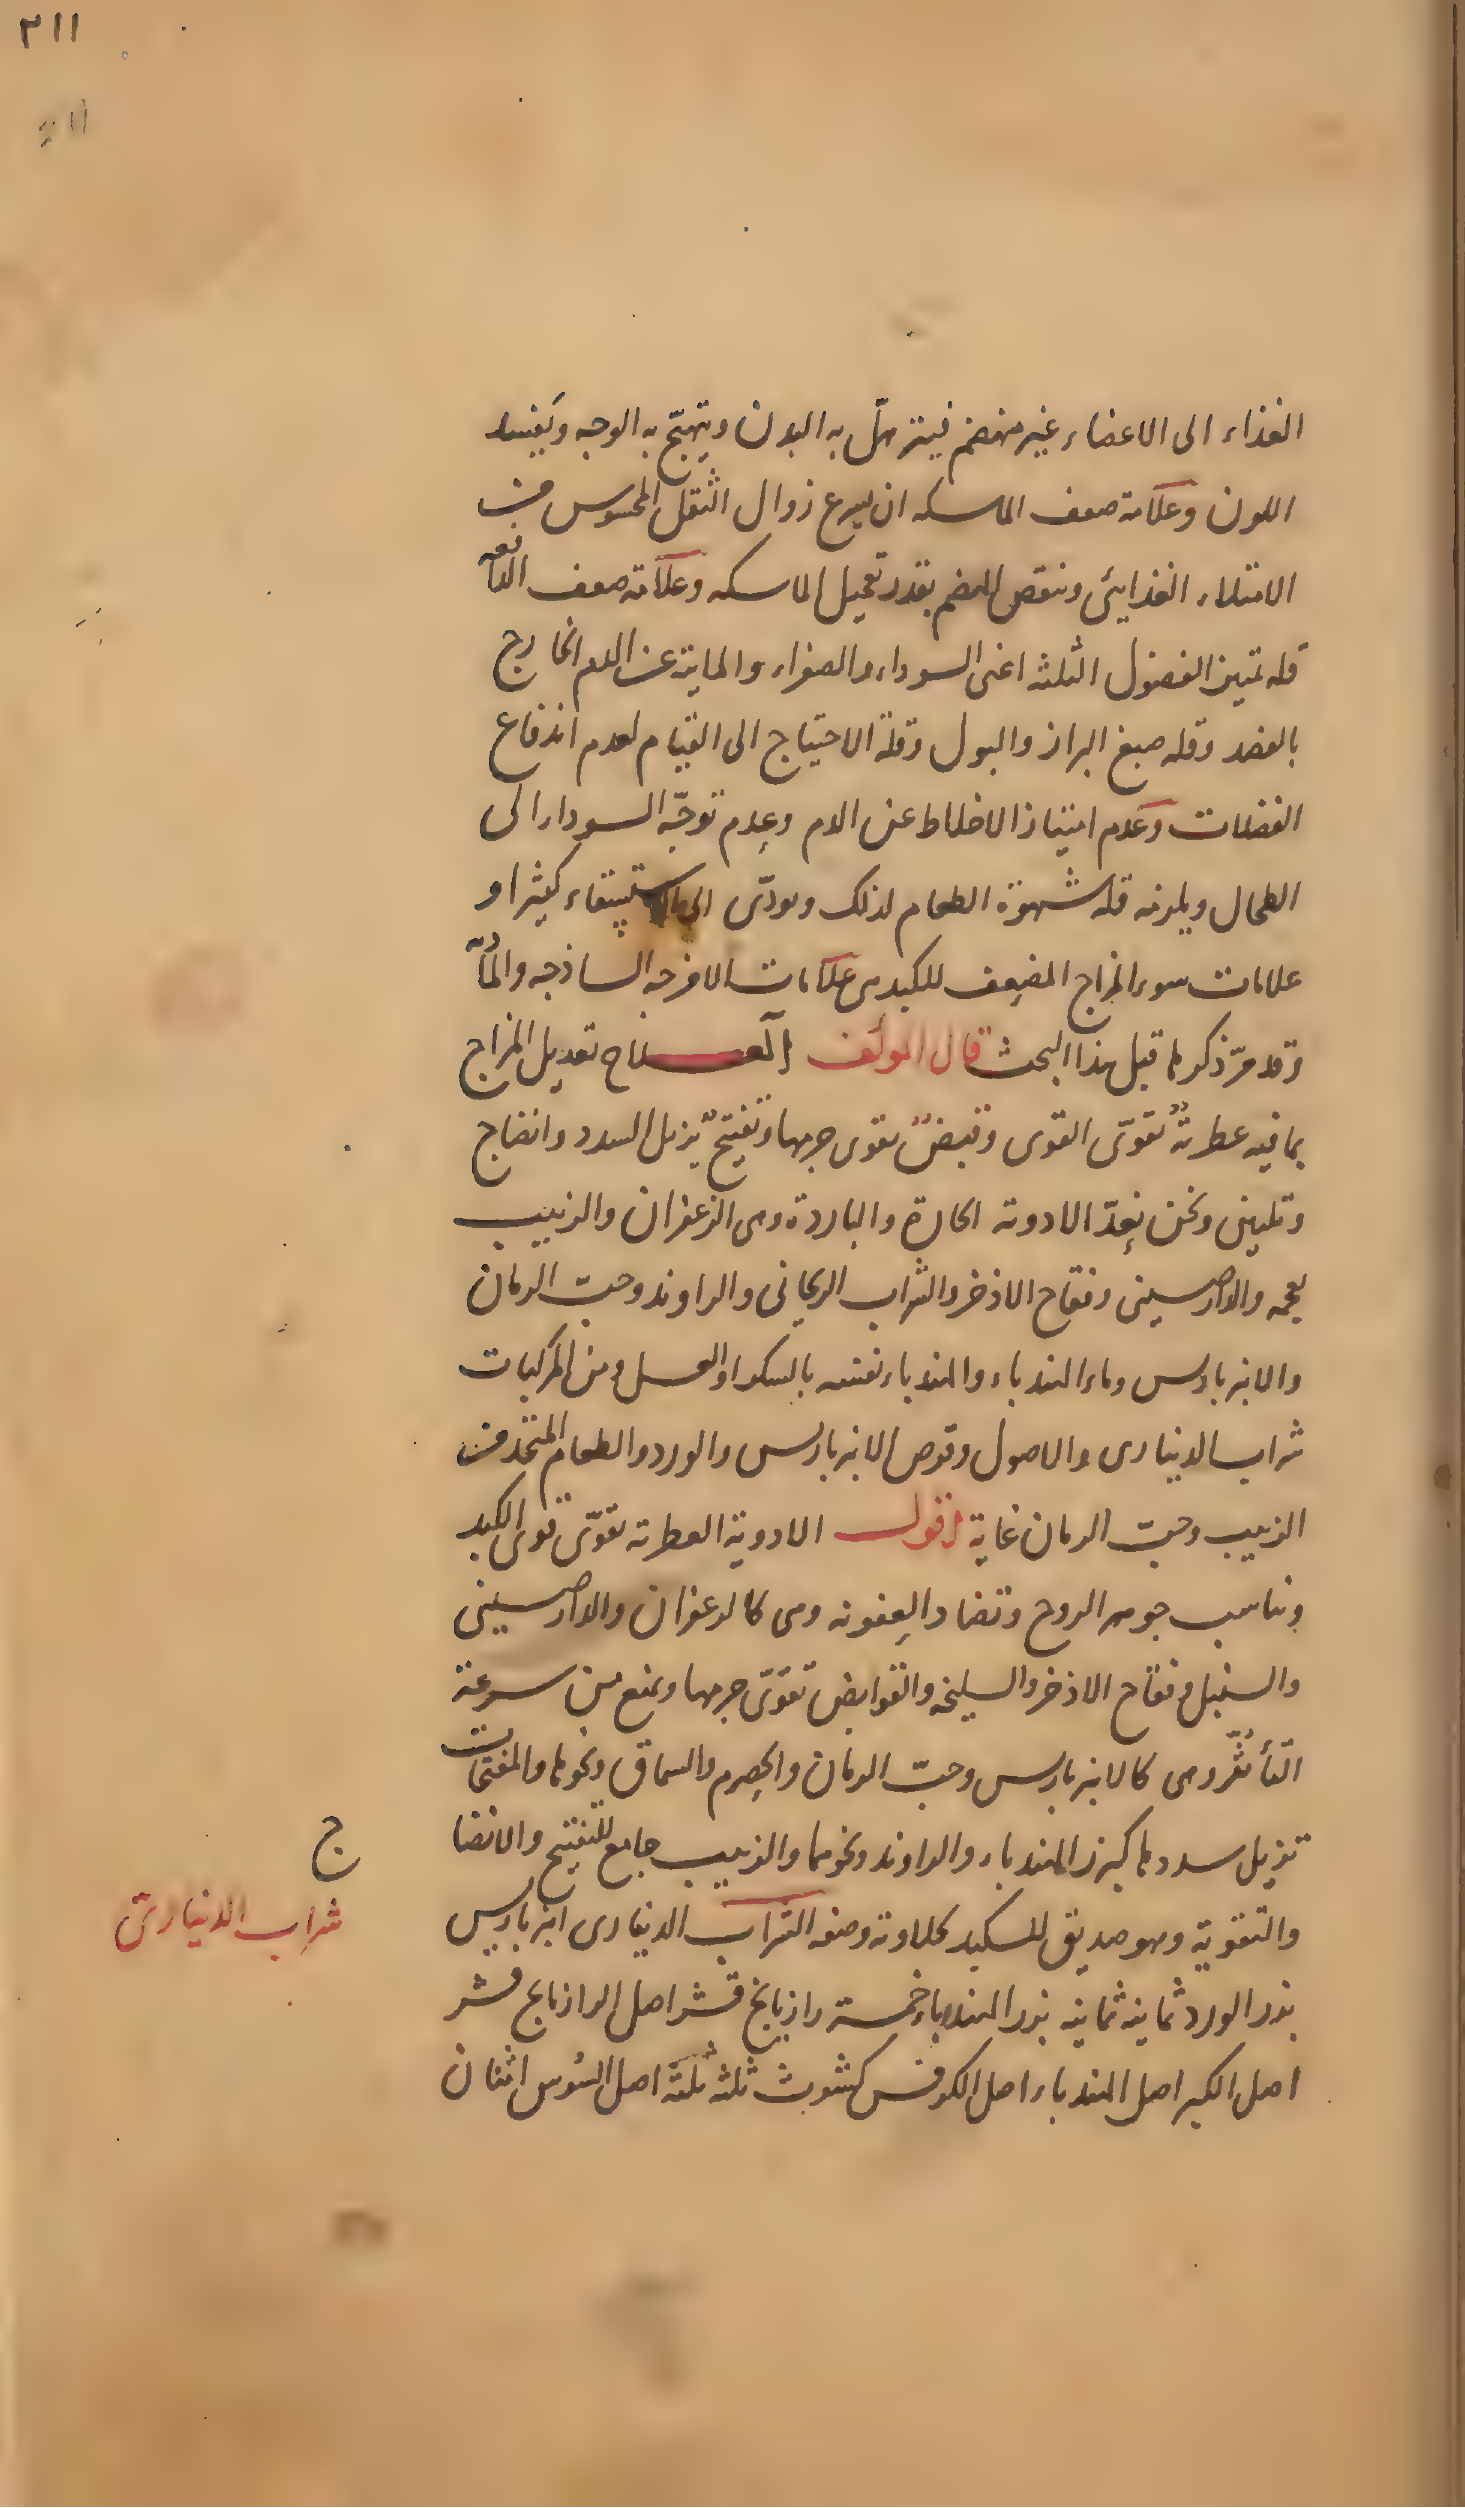 ٣١١
الغذاء الى الاعضاء غير منهضم فيترهّل به البدن ويتهبّج به الوجه ويفسد
اللون وعلامة ضعف الماسكه ان يسرع زوال الثقل المحسوس من
الامتلاء الغذايئ وينقص الهضم بقدر تعجيل الماسكه وعلامة ضعف الدافعه
قله تميز الفضول الثلثه اعنى السوداء والصفراء والمايئة عن الدم الخارج
بالفصد وقله صبغ البراز والبول وقلة الاحتياج الى القيام لعدم اندفاع
الفضلات وعدم امتياز الاخلاط عن الدم وعدم توجّه السوداء الى
الطحال ويلزمه قله شهوة الطعام لذلك ويودّى الى الاستسقاء كثيرا و
علامات سوء المزاج المضعف للكبد هى علامات الامزجه الساذجه والمادّيه
وقد مرّ ذكرها قبل هذا البحث قال المولّف العلاج تعديل المزاج
بما فيه عطريّةٌ تقوّى القوى وقبضٌ يقوى جرمها وتفتيحٌ يزيل السدد وانضاج
وتليين ونحن نعدّ الادوية الحارة والباردة وهى الزعفران والزبيب
بعجمه والدارصينى وفقاح الاذخر والشراب الريحانى والراوند وحبّ الرمان
والانبرباريس وماء الهندباء والهندباء نفسه بالسكر او العسل ومن المركبات
شراب الدينارى والاصول وقرص الانبرباريس والورد والطعام المتخذ من
الزبيب وحبّ الرمان غاية اقول الادوية العطرية تقوّى قوى الكبد
وتناسب جوهر الروح وتضاد العفونه وهى كالزعفران والدارصينى
والسنبل وفقاح الاذخر والسليخه والقوابض تقوّى جرمها وتمنع من سرعة
التأثّر وهى كالانبرباريس وحبّ الرمان والحصرم والسماق ونحوها والمفتحات
تزيل سددها كبزر الهندباء والراوند ونحوهما والزبيب جامع للتفتيح والانضا
ج
والتقوية وهو صديق للكبد لحلاوته وصفه الشراب الدينارى انبرباريس
شراب الدينارىّ
بزر الورد ثمانيه ثمانيه بزر الهندباء خمسة رازيانج قشر اصل الرازيانج قشر
اصل الكبر اصل الهندباء اصل الكرفس كشوث ثلثه ثلثة اصل السُوس اثنان